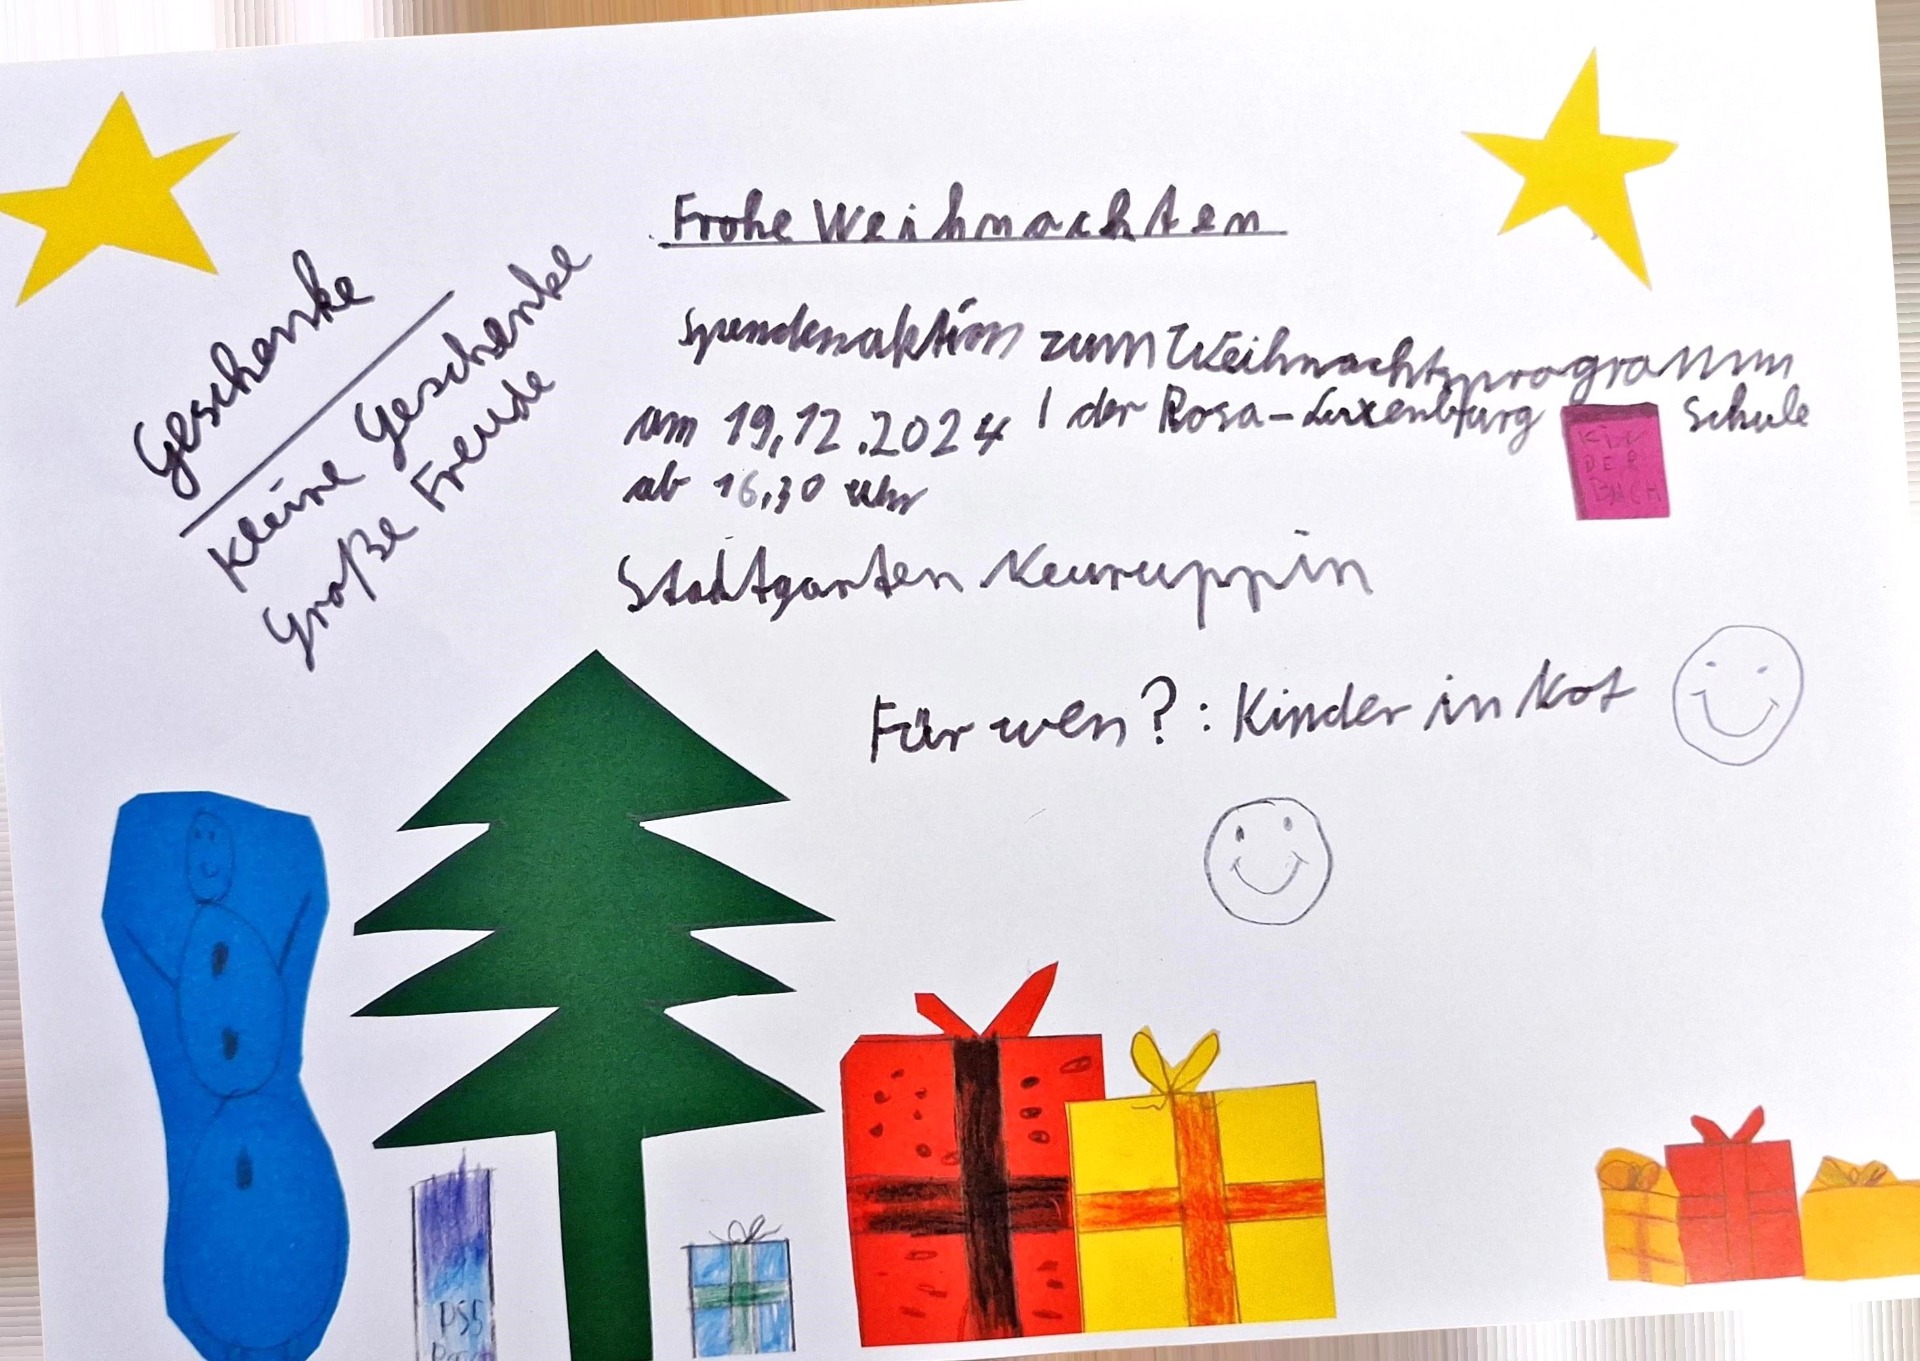 Frohe Weihnachten
Geschenke
Kleine Geschenke
Große Freude
Spendenaktion zum Weihnachtsprogramm
am 19.12.2024 / der Rosa-Luxenburg Schule
ab 16.30 Uhr
KIN
DER
BUCH
Stadtgarten Neuruppin
Für wen?: Kinder in Not
PS5